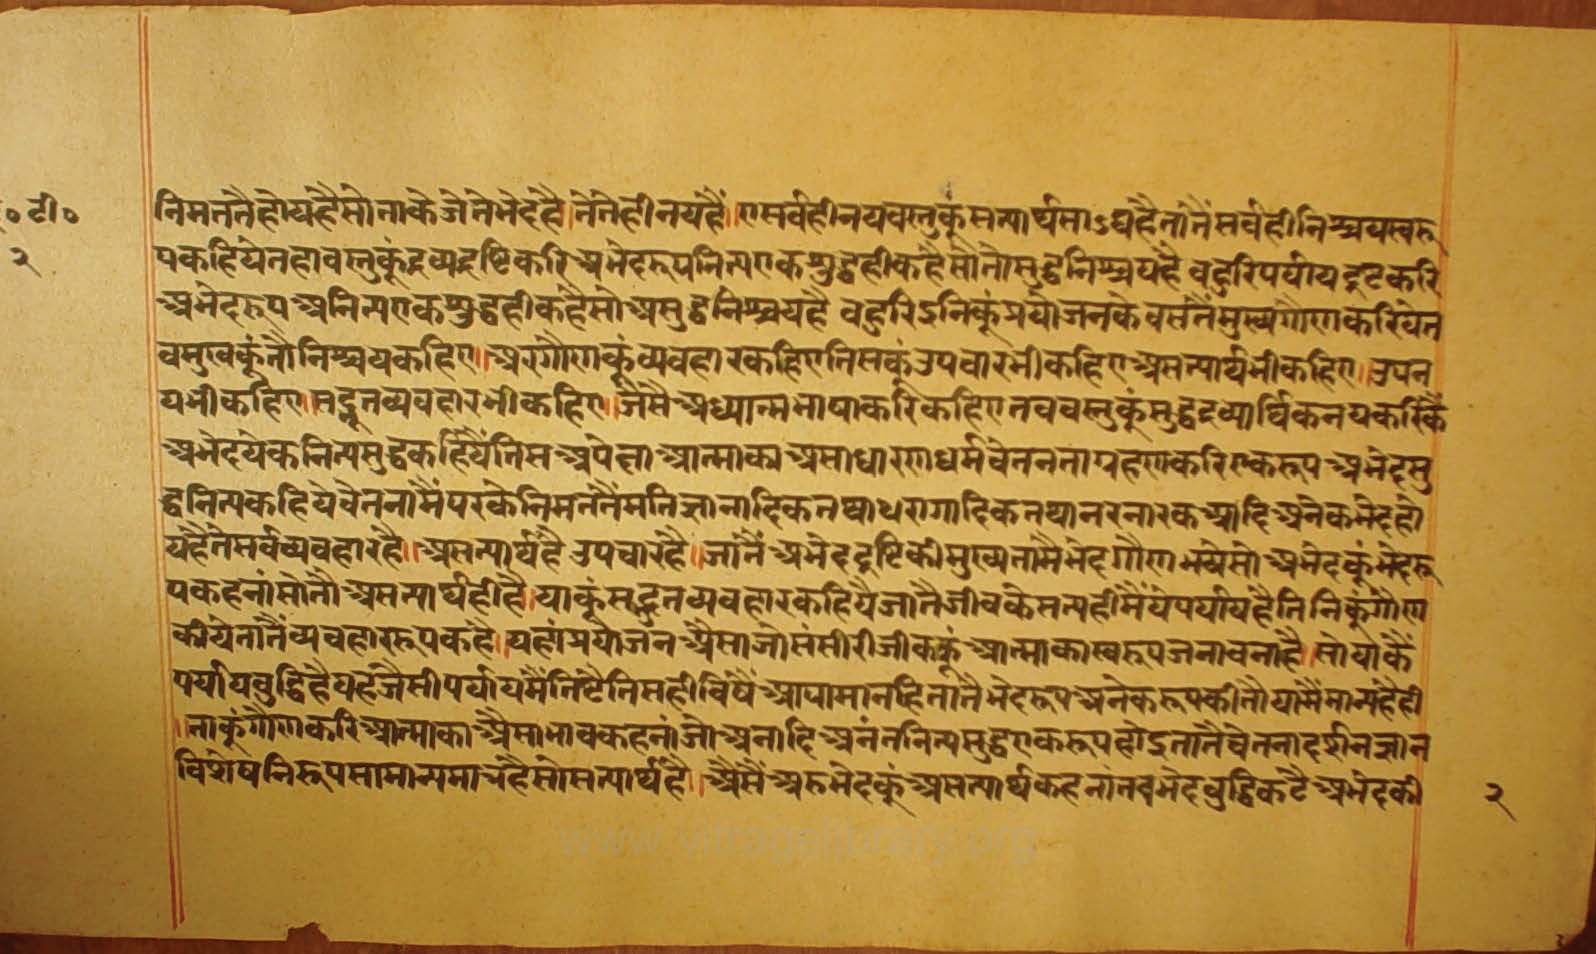 ० टी०
२
निमततैहोयहैसोताकेजेतेभेदहै।तेतेहीनयहैं।एसर्वहीनयवस्तुकूंसत्यार्थसाऽद्यहैतातैंसर्वहीनिश्चयस्वरू
पकहियेतहांवस्तुकूंद्रव्यदृष्टिकरिअभेदरूपनित्यएकशुद्धहीकहैसोतोसुद्धनिश्चयहै वहुरिपर्यायदृष्टकरि
अभेदरूपअनित्यएकशुद्धहीकहैसोअसुद्धनिश्चयहै वहुरिऽनिकूंप्रयोजनकेवसतैंमुख्यगौणकरियेत
वमुख्यकूंतौनिश्चयकहिए॥अरगौणकूंव्यवहारकहिएतिसकूंउपचारभीकहिएअसत्यार्थभीकहिए॥उपन
यभीकहिए॥सद्भूतव्यवहारभीकहिए॥जैसैअध्यात्मभाषाकरिकहिएतववस्तुकूंसुद्धद्रव्यार्थिकनयकरिकै
अभेदयेकनित्यसुद्धकहियैंतिसअपेक्षाआत्माकाअसाधारणधर्मचेतनताग्रहणकरिएकरूपअभेदसु
द्धनित्यकहियेचेतनतामैंपरकेनिमततैंमतिज्ञानादिकतथाथरागादिकतथानरनारकआदिअनेकभेदहो
यहैतेसर्वव्यवहारहै॥असत्यार्थहै उपचारहै॥जातैंअभेददृष्टिकीमुख्यतामैभेदगौणभयेसोअभेदकूंभेदरू
पकहनांसोतौअसत्यार्थहीहै।याकूंसद्भूतव्यवहारकहियैजातैजीवकेसत्यहीमैंयेपर्यायहैतिनिकूंगौण
कीयेतातैंव्यवहाररूपकहै।यहांप्रयोजनअैसाजोसंसीरीजीककूंआत्माकास्वरूपजनावनाहै।सोयाकैं
पर्यायवुद्धिहैयहजैसीपर्यायमैंतिष्टैतिसहीविषैंआपामानहितातैभेदरूपअनेकरूपकीतौयामैंमान्यहैही
।ताकूंगौणकरिआत्माकाअैसाभावकहनांजोअनादिअनंतनित्यसुद्धएकरूपहोऽतातैचेतनादर्शनज्ञान
विशेषनिरूपसामान्यमात्रहैसोसत्यार्थहै।अैसैंअरुभेदकूंअसत्यार्थकहनांतवभेदवुद्धिकटैअभेदकी
२
www.vitragelibrary.org